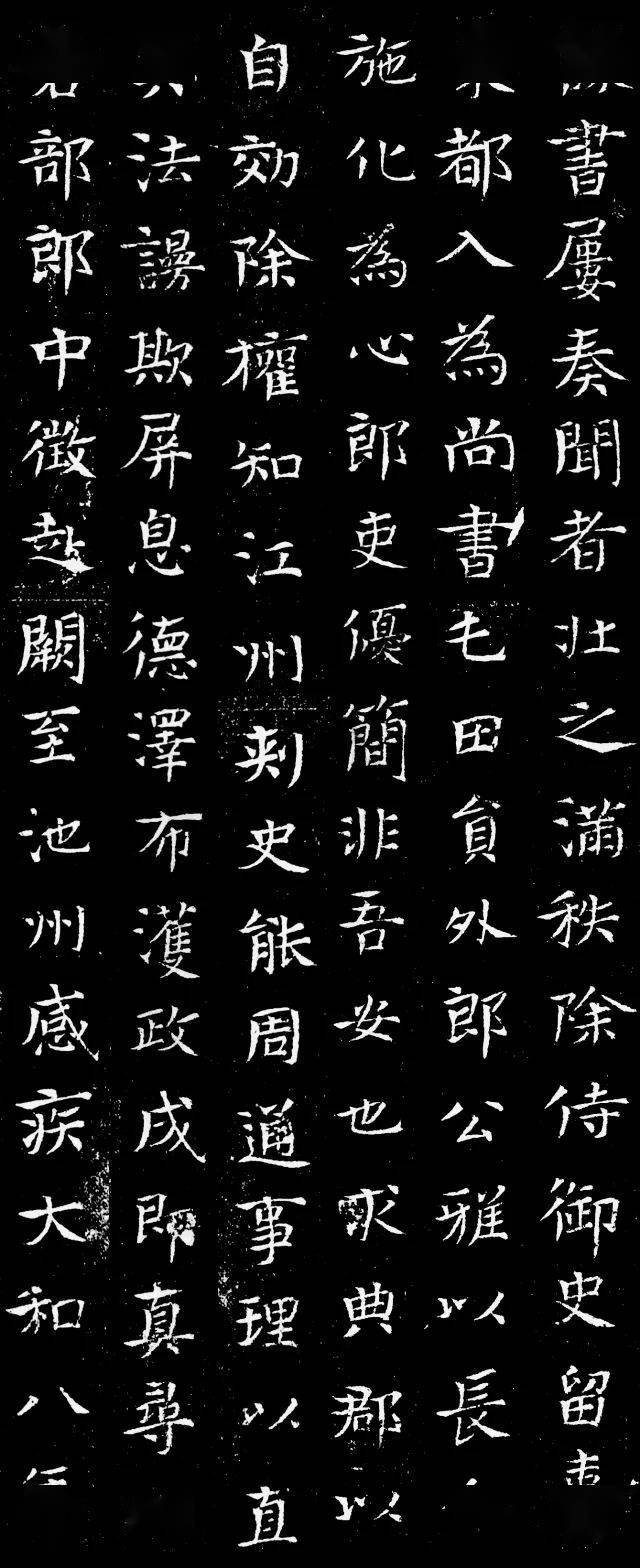 書屢奏聞者壯之滿秩除侍御史留
都入為尚書屯田員外郎公雅以長
施化為心郎吏優簡非吾安也求典郡以
自効除權知江州刺史能周通事理以直
法謾欺屏息德澤布濩政成即真尋
部郎中徵赴闕至池州感疾大和八